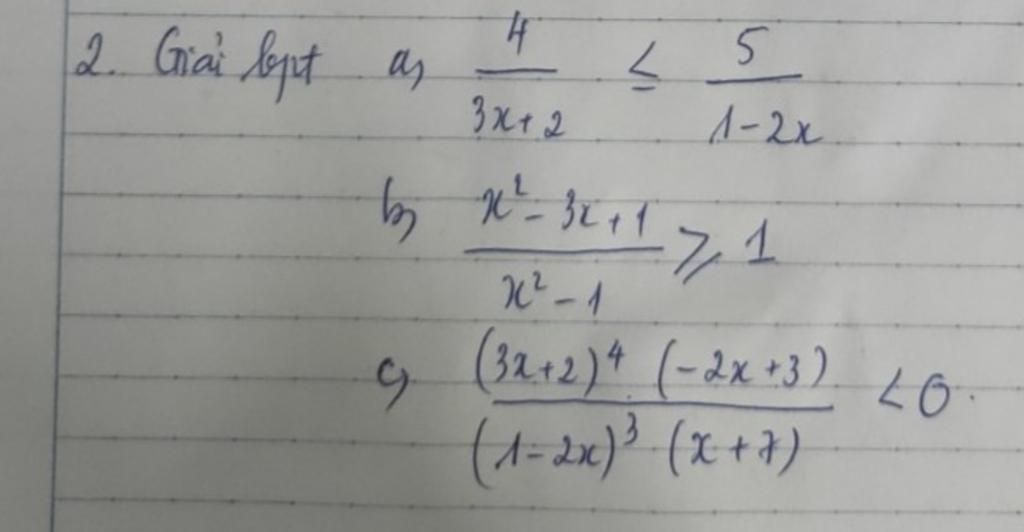 2. Giải bpt a, 4/(3x+2) ≤ 5/(1-2x)
b, (x²-3x+1)/(x²-1) ≥ 1
c, ((3x+2)⁴ (-2x+3))/((1-2x)³ (x+7)) < 0.